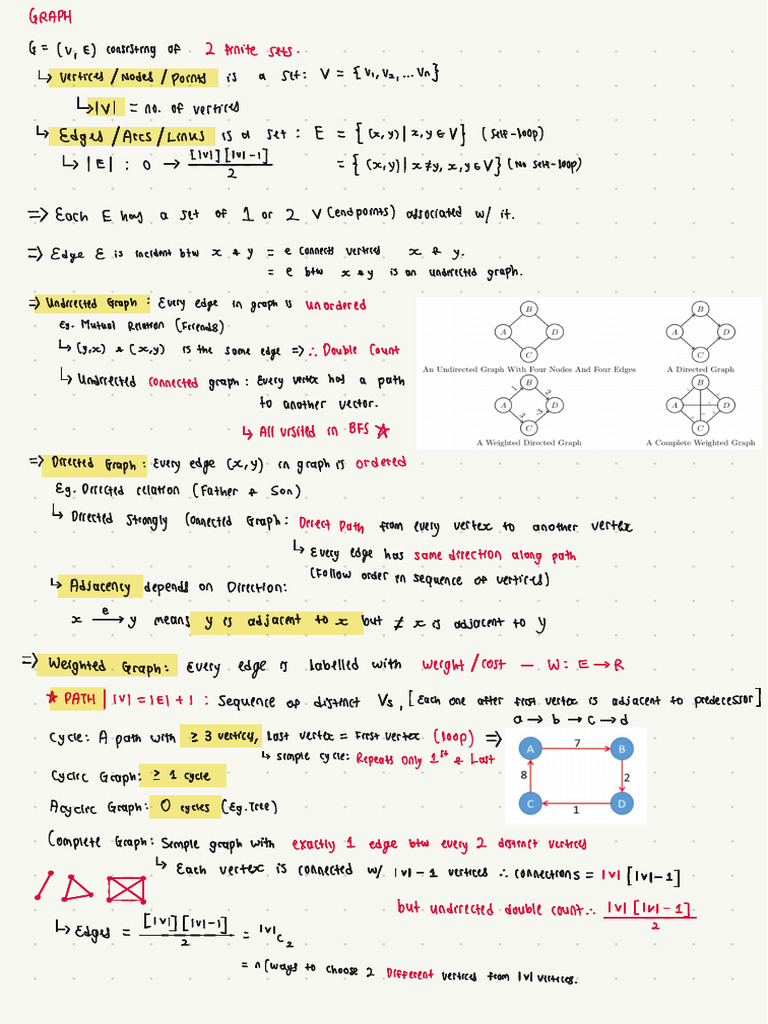 GRAPH
G = (V, E) consisting of 2 finite sets.
↳ Vertices/Nodes/Points is a set: V = {V₁, V₂, ... Vn}
↳ |V| = no. of vertices
↳ Edges/Arcs/Links is a set : E = {(x,y) | x,y ∈ V} (self-loop)
↳ |E| : 0 → [|V|][|V|-1]/2 = {(x,y) | x≠y, x,y ∈ V} (No self-loop)
=> Each E has a set of 1 or 2 V (endpoints) associated w/ it.
=> Edge E is incident btw x & y = e connects vertices x & y.
= e btw x & y is an undirected graph.
=> Undirected Graph : Every edge in graph is unordered
Eg. Mutual Relation (Friends)
↳ (y,x) & (x,y) is the same edge => ∴ Double Count
↳ Undirected connected graph : Every vertex has a path
to another vector.
↳ All visited in BFS ★
B
A D
C
An Undirected Graph With Four Nodes And Four Edges
B
A D
C
A Directed Graph
B
1 2
A D
3 -3
C
A Weighted Directed Graph
B
A D
C
A Complete Weighted Graph
=> Directed Graph : Every edge (x,y) in graph is ordered
Eg. Directed relation (Father & Son)
↳ Directed Strongly Connected Graph : Direct Path from every vertex to another vertex
↳ Every edge has same direction along path
(Follow order in sequence of vertices)
↳ Adjacency depends on Direction:
x —e→ y means y is adjacent to x but ≠ x is adjacent to y
=> Weighted Graph : Every edge is labelled with weight/cost — W: E → R
★ PATH | |V| = |E| + 1 : Sequence of distinct Vs, [Each one after first vertex is adjacent to predecessor]
a → b → c → d
Cycle : A path with ≥ 3 vertices, Last vertex = First vertex (loop) =>
↳ simple cycle: Repeats only 1st & Last
A 7 B
8 2
C 1 D
Cyclic Graph: ≥ 1 cycle
Acyclic Graph: 0 cycles (Eg. Tree)
Complete Graph : Simple graph with exactly 1 edge btw every 2 distinct vertices
↳ Each vertex is connected w/ |V| - 1 vertices ∴ connections = |V| [|V|-1]
but undirected double count ∴ |V| [|V|-1]/2
↳ Edges = [|V|][|V|-1]/2 = |V|C₂
= n(ways to choose 2 Different vertices from |V| vertices.